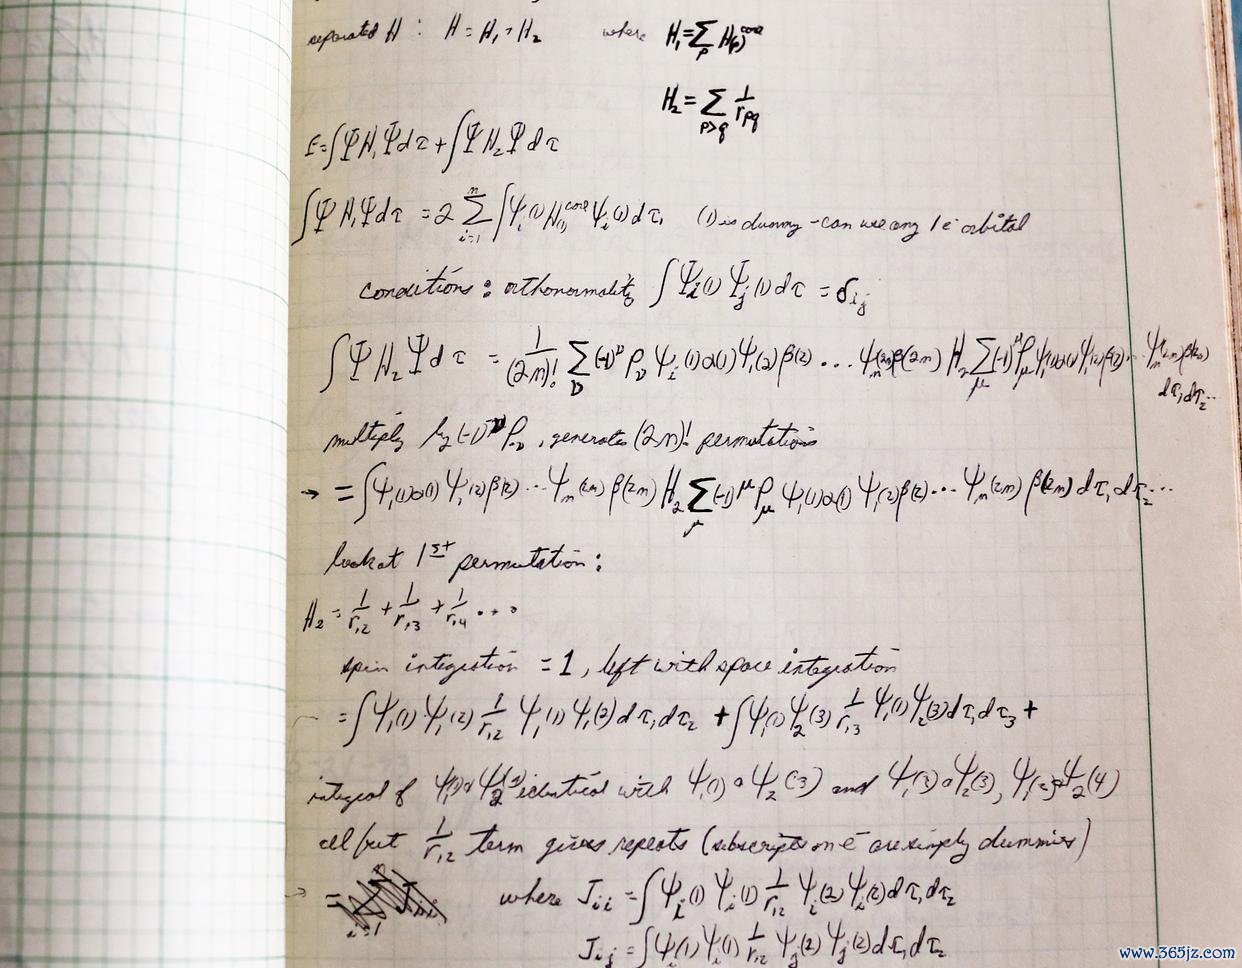 separated H : H = H₁ + H₂ where H₁ = Σ_p H(p)^core
H₂ = Σ_{p>q} 1/r_pq
E = ∫Ψ H₁ Ψ dτ + ∫Ψ H₂ Ψ dτ
∫Ψ H₁ Ψ dτ = 2 Σ_{i=1}^n ∫ψ_i(1) H(1)^core ψ_i(1) dτ₁ (1) is dummy - can use any 1 e⁻ orbital
conditions : orthonormality ∫Ψ_i(1) Ψ_j(1) dτ = δ_ij
∫Ψ H₂ Ψ dτ = 1/(2n)! Σ_ν (-1)^ν P_ν ψ₁(1)α(1) ψ₁(2)β(2) ... ψ_n(2n)β(2n) H₂ Σ_μ (-1)^μ P_μ ψ₁(1)α(1) ψ₁(2)β(2) ... ψ_n(2n)β(2n)
dτ₁ dτ₂ ...
multiply by (-1)^ν P_ν , generates (2n)! permutations
→ = ∫ψ₁(1)α(1) ψ₁(2)β(2) ... ψ_n(2n) β(2n) H₂ Σ_μ (-1)^μ P_μ ψ₁(1)α(1) ψ₁(2)β(2) ... ψ_n(2n) β(2n) dτ₁ dτ₂ ...
look at 1st permutation :
H₂ = 1/r₁₂ + 1/r₁₃ + 1/r₁₄ ...
spin integration = 1 , left with space integration
= ∫ψ₁(1) ψ₁(2) 1/r₁₂ ψ₁(1) ψ₁(2) dτ₁ dτ₂ + ∫ψ₁(1) ψ₂(3) 1/r₁₃ ψ₁(1) ψ₂(3) dτ₁ dτ₃ +
integral of identical with ψ₁(1) ψ₂(3) and
all but 1/r₁₂ term gives repeats (subscripts on e⁻ are simply dummies)
→ = where J_ii = ∫ψ_i(1) ψ_i(1) 1/r₁₂ ψ_i(2) ψ_i(2) dτ₁ dτ₂
J_ij = ∫ψ_i(1) ψ_i(1) 1/r₁₂ ψ_j(2) ψ_j(2) dτ₁ dτ₂
www.365jz.com